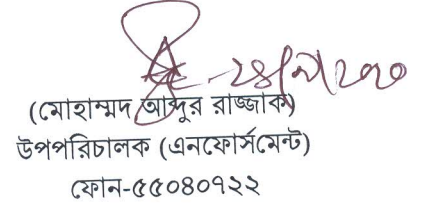 (মোহাম্মদ আব্দুর রাজ্জাক)
উপপরিচালক (এনফোর্সমেন্ট)
ফোন-৫৫০৪০৭২২